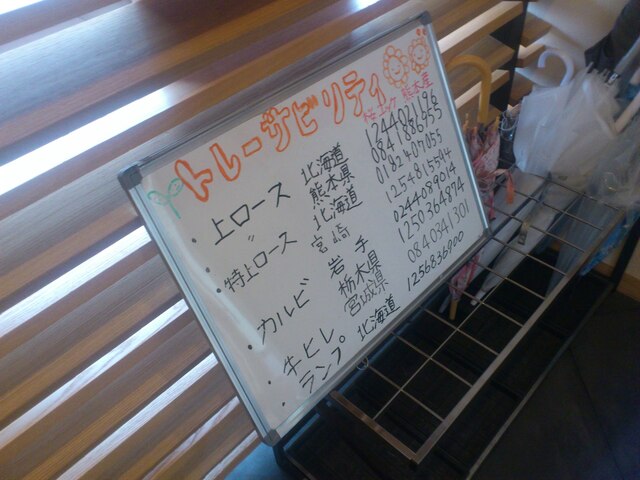 トレーサビリティ
熊本産
・上ロース 北海道 1244021196
〃 熊本県 0841886955
・特上ロース 北海道 0182407055
宮崎
・カルビ 岩手 0244089014
栃木県 1250364874
・牛ヒレ 宮城県 0840341301
・ランプ 北海道 1256836900